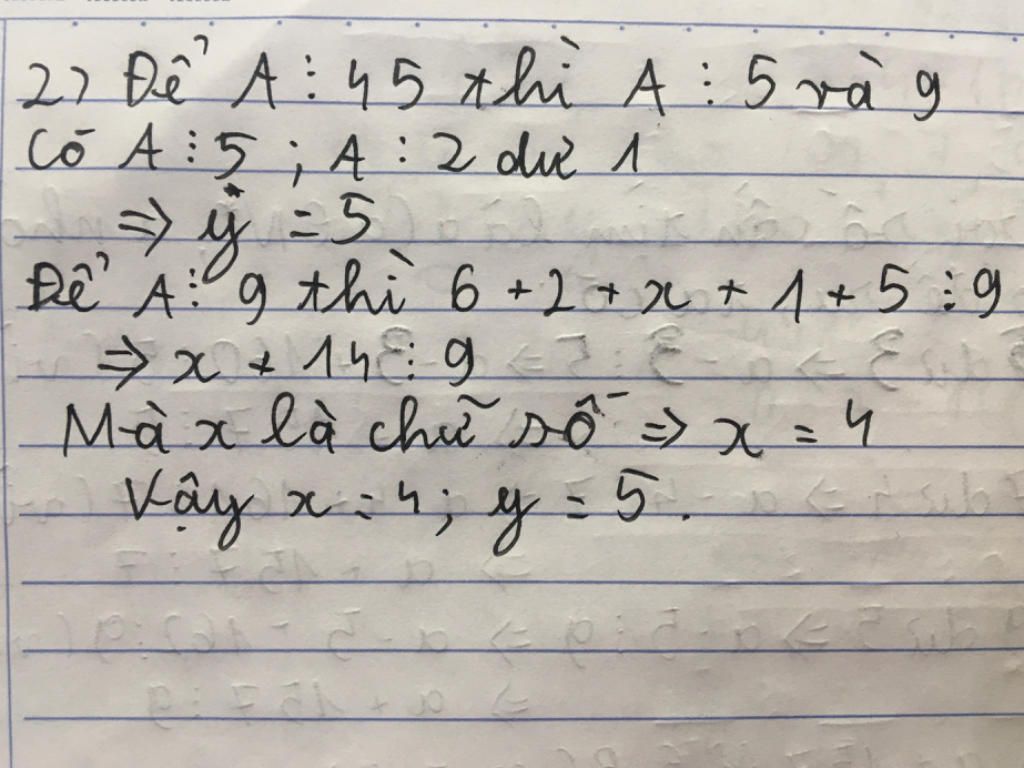 2) Để A ⋮ 45 thì A ⋮ 5 và 9
Có A ⋮ 5 ; A : 2 dư 1
⇒ y = 5
Để A ⋮ 9 thì 6 + 2 + x + 1 + 5 ⋮ 9
⇒ x + 14 ⋮ 9
Mà x là chữ số ⇒ x = 4
Vậy x = 4 ; y = 5 .